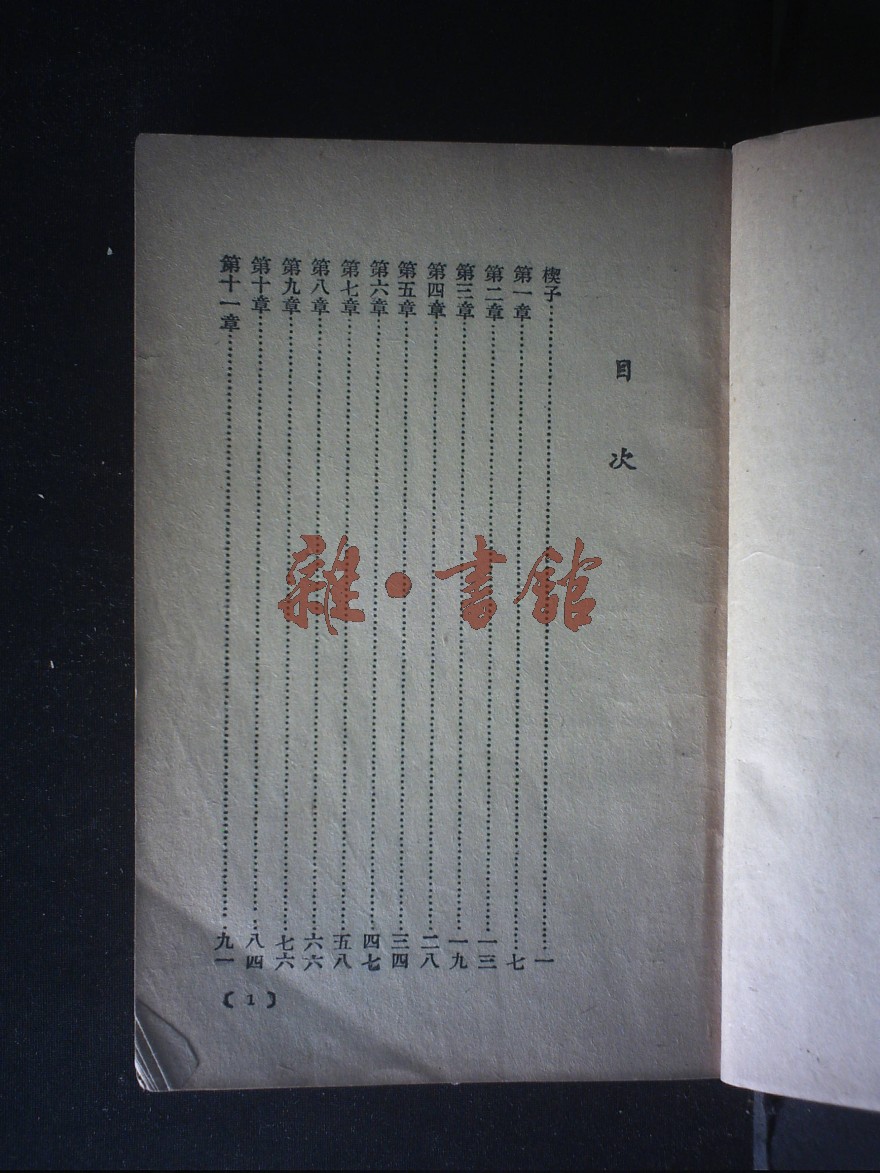 目次
楔子……一
第一章……七
第二章……一三
第三章……一九
第四章……二八
第五章……三四
第六章……四七
第七章……五八
第八章……六六
第九章……七六
第十章……八四
第十一章……九一
〔1〕
雜·書館